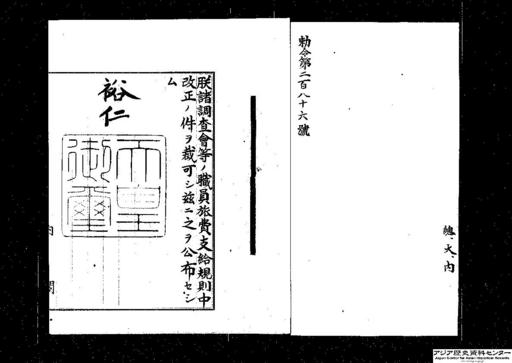 勅令第二百八十六號
總、大、內
朕諸調査會等ノ職員旅費支給規則中
改正ノ件ヲ裁可シ茲ニ之ヲ公布セシ
ム
裕仁
天皇
御璽
內
閣
アジア歴史資料センター
Japan Center for Asian Historical Records